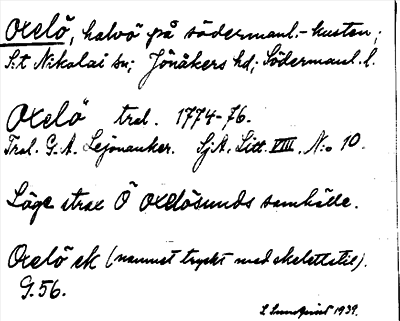 Oxelö, halvö på södermanl.-kusten;
S:t Nikolai sn; Jönåkers hd; Södermanl. l.
Oxelö tral. 1774-76.
Tral. G. A. Lejonanker. Sj.A. Litt. VIII, N:o 10.
Läge strax Ö Oxelösunds samhälle.
Oxelö ek (namnet tryckt med skelettstil).
G.56.
L Lundquist 1939.